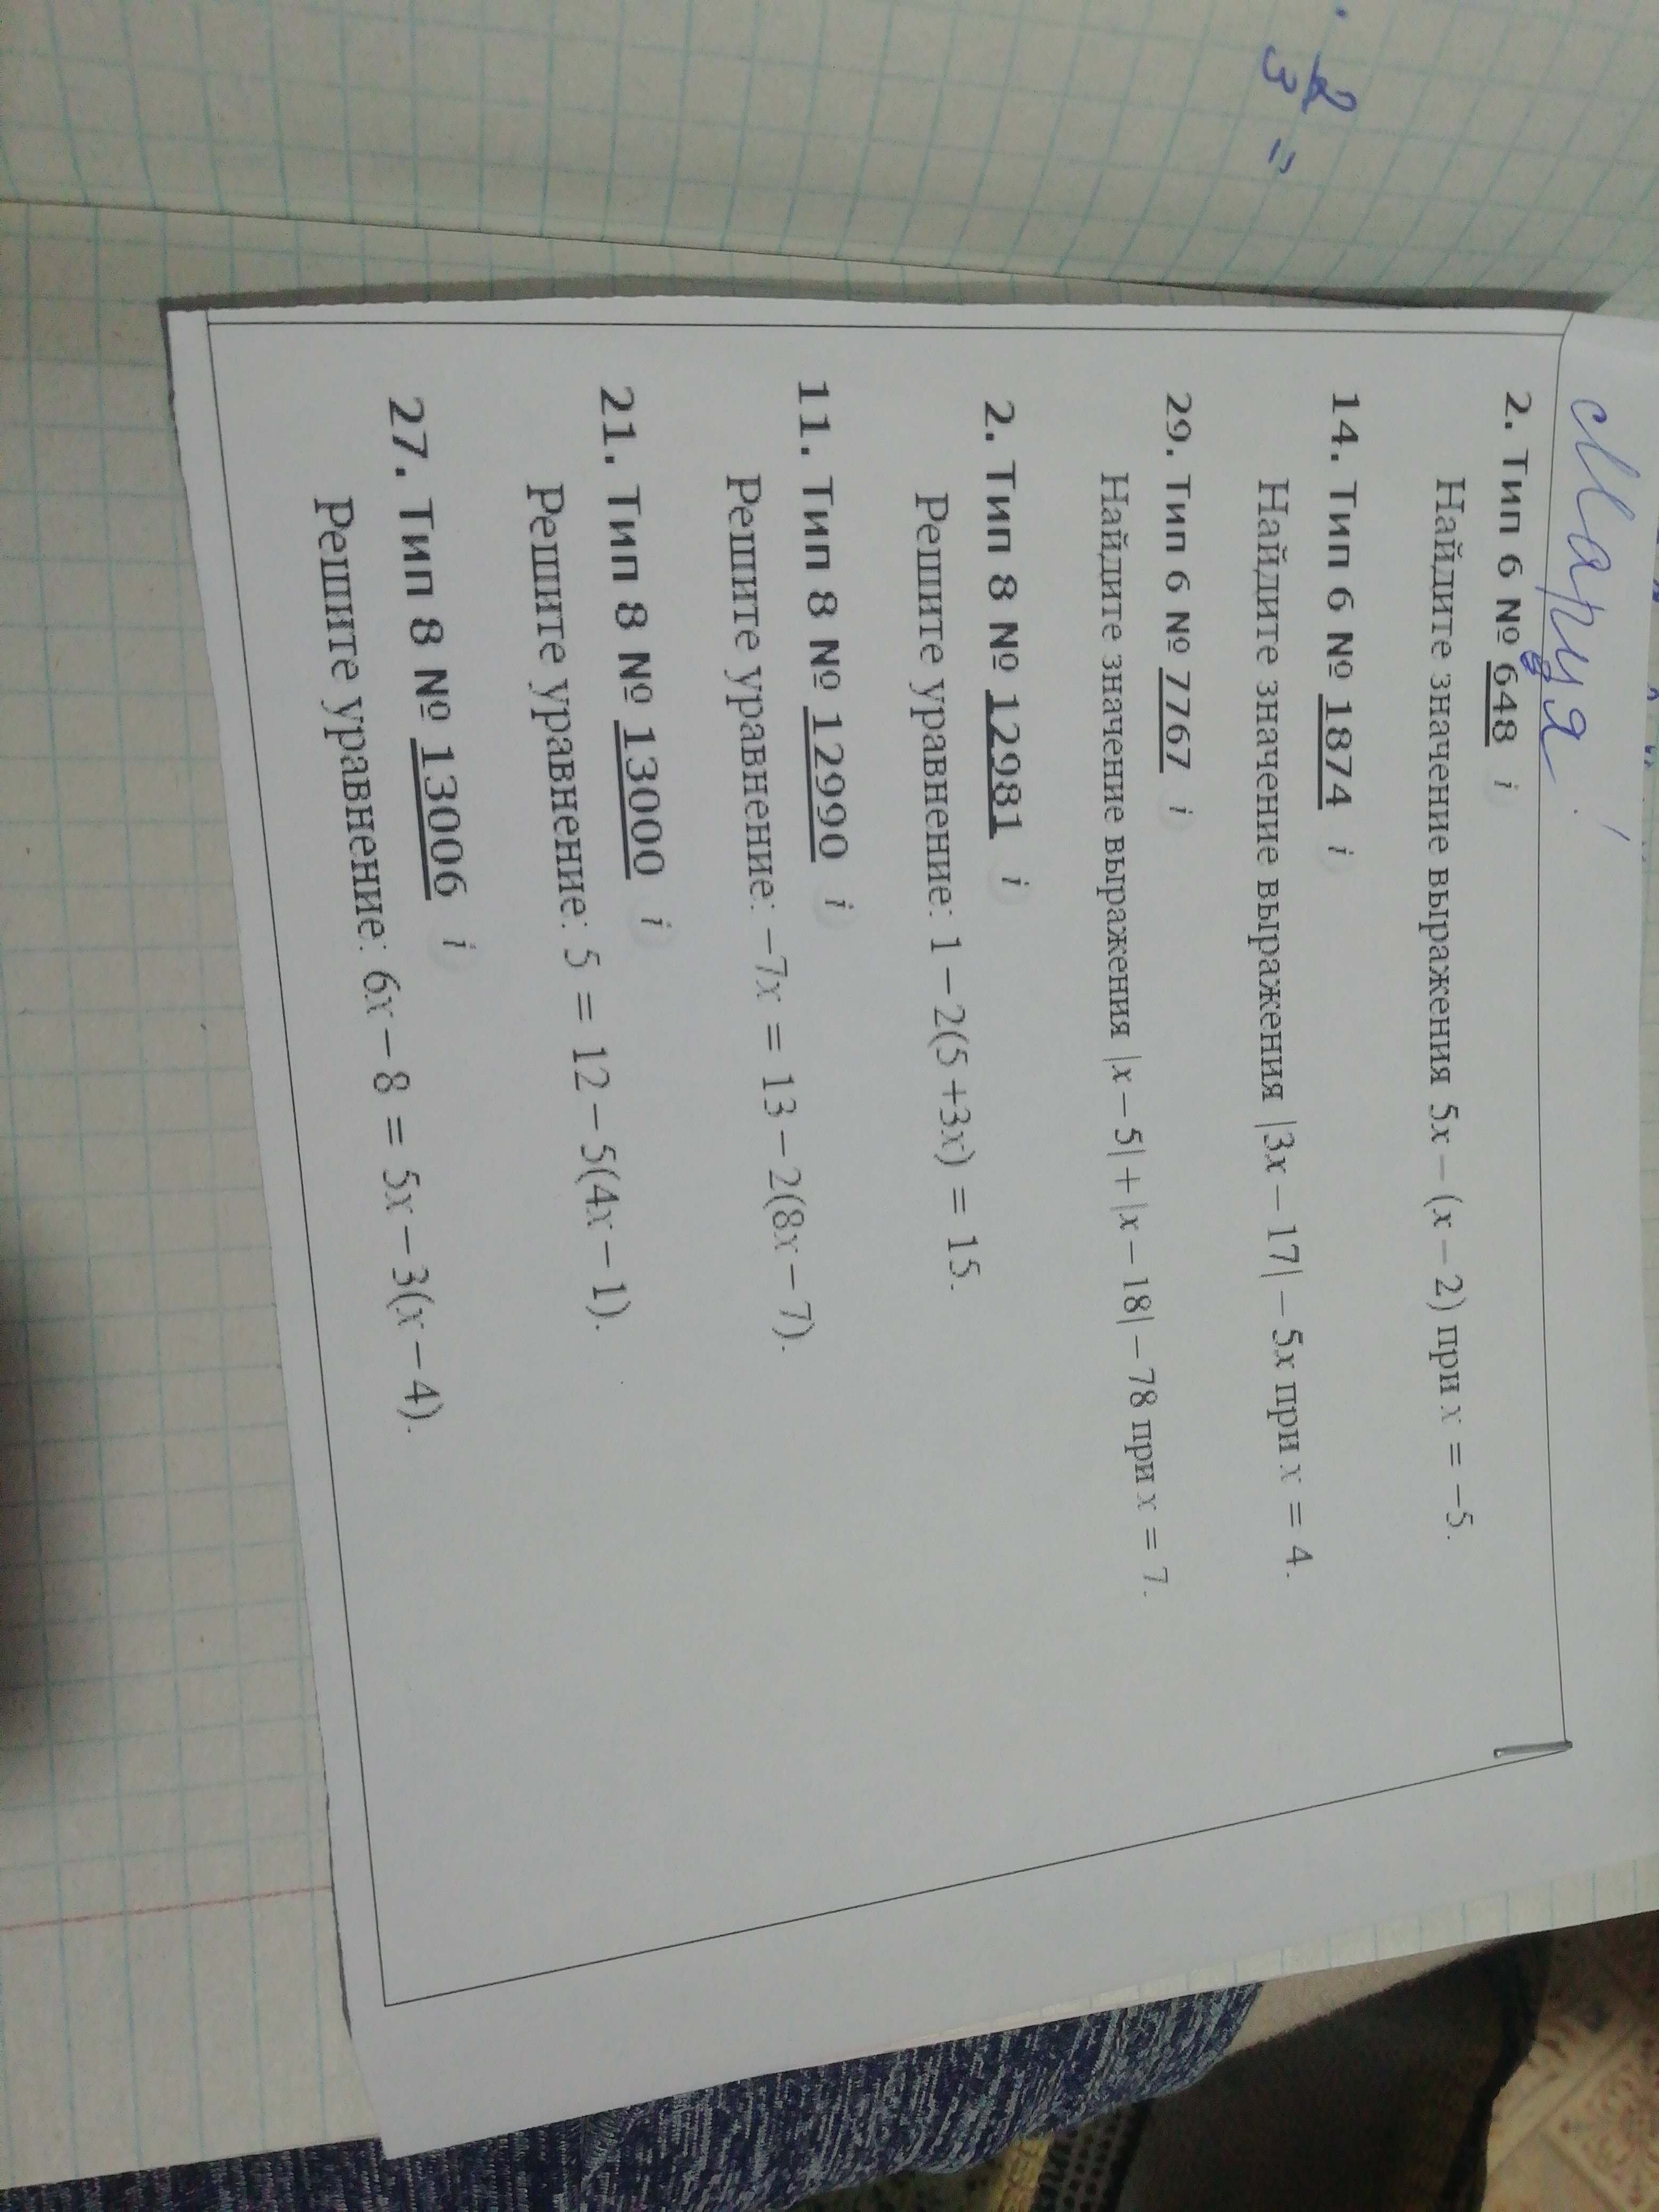 Мария
2. Тип 6 № 648 i
Найдите значение выражения 5x − (x − 2) при x = −5.
14. Тип 6 № 1874 i
Найдите значение выражения |3x − 17| − 5x при x = 4.
29. Тип 6 № 7767 i
Найдите значение выражения |x − 5| + |x − 18| − 78 при x = 7.
2. Тип 8 № 12981 i
Решите уравнение: 1 − 2(5 +3x) = 15.
11. Тип 8 № 12990 i
Решите уравнение: −7x = 13 − 2(8x − 7).
21. Тип 8 № 13000 i
Решите уравнение: 5 = 12 − 5(4x − 1).
27. Тип 8 № 13006 i
Решите уравнение: 6x − 8 = 5x − 3(x − 4).